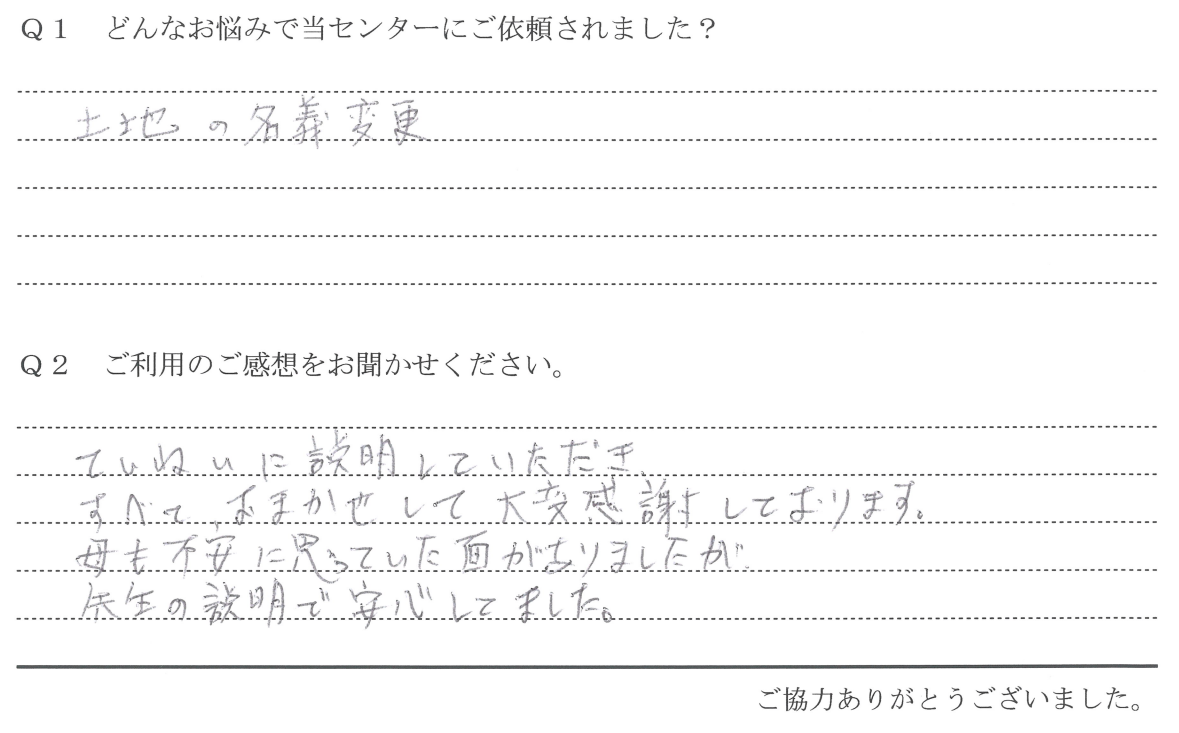 Q1 どんなお悩みで当センターにご依頼されました?
土地の名義変更
Q2 ご利用のご感想をお聞かせください。
ていねいに説明していただき、
すべて、おまかせして大変感謝しております。
母も不安に思っていた面がありましたが、
先生の説明で安心してました。
ご協力ありがとうございました。